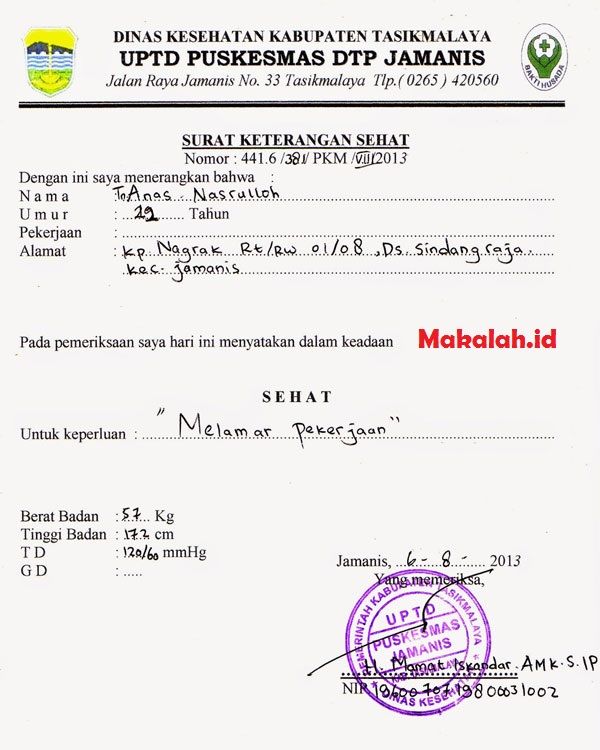 DINAS KESEHATAN KABUPATEN TASIKMALAYA
UPTD PUSKESMAS DTP JAMANIS
Jalan Raya Jamanis No. 33 Tasikmalaya Tlp.( 0265 ) 420560
BAKTI HUSADA
SURAT KETERANGAN SEHAT
Nomor : 441.6 /381/ PKM /VIII/2013
Dengan ini saya menerangkan bahwa :
N a m a : Tn Anas Nasrulloh
U m u r : ....29....... Tahun
Pekerjaan :
Alamat : kp. Nagrak Rt/Rw 01/08, Ds. Sindangraja.
kec. jamanis
Pada pemeriksaan saya hari ini menyatakan dalam keadaan Makalah.id
S E H A T
Untuk keperluan : "Melamar pekerjaan"
Berat Badan : 57 Kg
Tinggi Badan : 172 cm
T D : 120/60 mmHg
G D : .....
Jamanis, 6 - 8 - 2013
Yang memeriksa,
PEMERINTAH KABUPATEN TASIKMALAYA
UPTD
PUSKESMAS
JAMANIS
DINAS KESEHATAN
H. Mamat Iskandar. AMK. S.IP
NIP. 196007071980031002